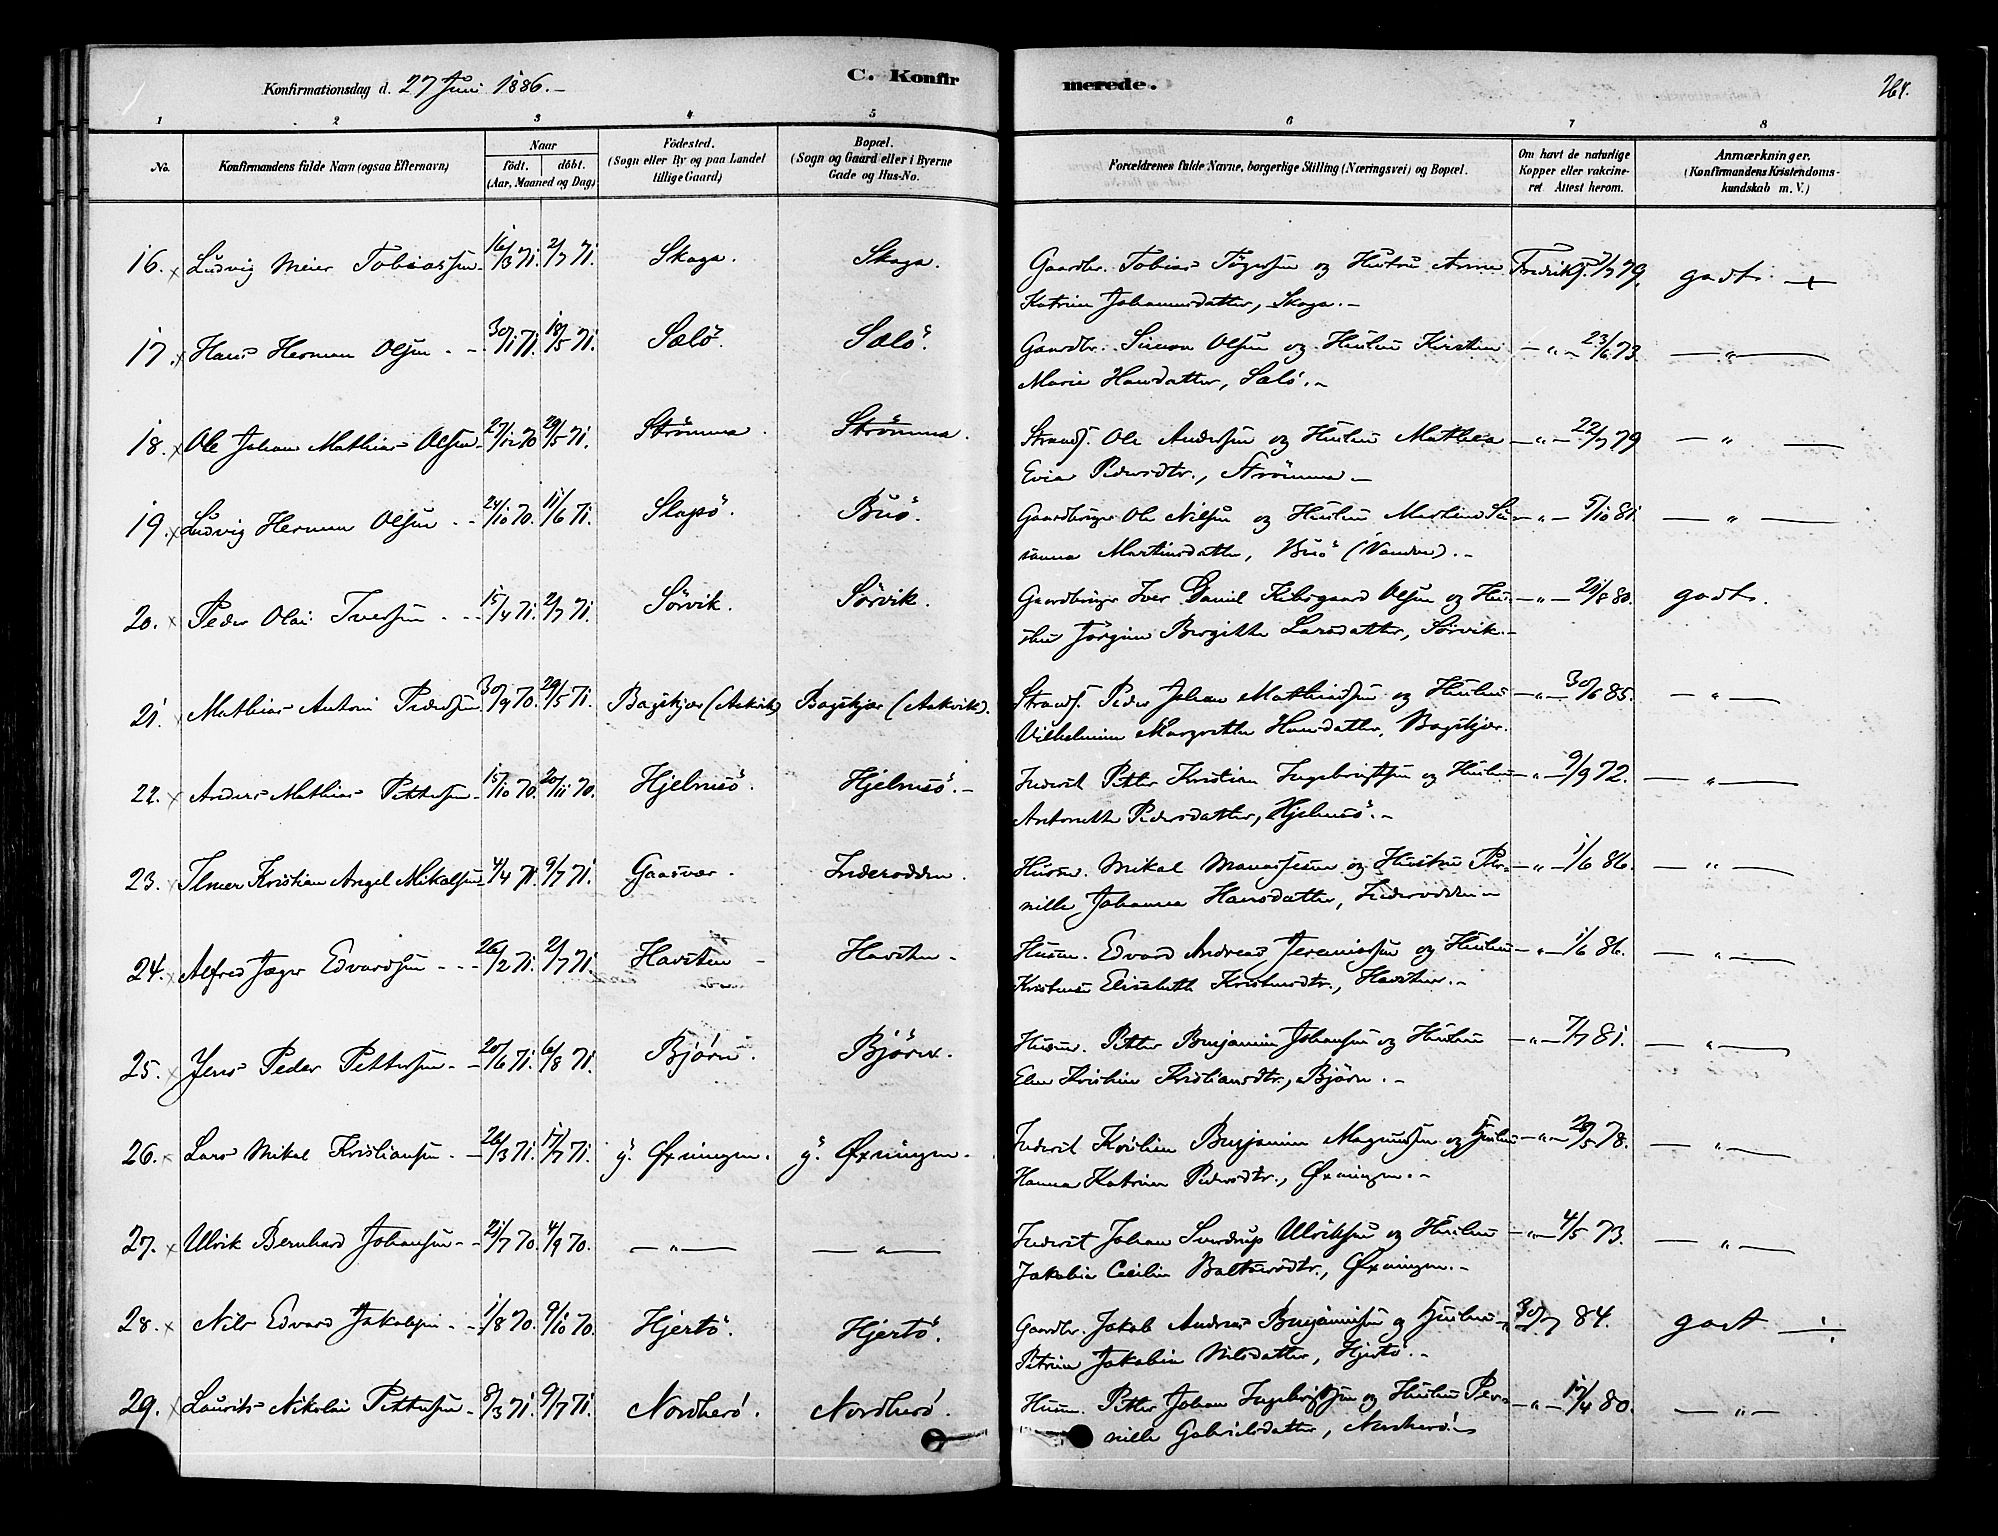 Konfirmationsdag d. 27 Juni 1886.- C. Konfirmerede. 264.
1 2 3 4 5 6 7 8
No. Konfirmandens fulde Navn (ogsaa Efternavn) Naar født. døbt. (Aar, Maaned og Dag) Fødested. (Sogn eller By og paa Landet tillige Gaard) Bopæl. (Sogn og Gaard eller i Byerne Gade og Hus-No. Forældrenes fulde Navne, borgerlige Stilling (Næringsvei) og Bopæl. Om havt de naturlige Kopper eller vakcineret Attest herom. Anmærkninger. (Konfirmandens Kristendomskundskab m. V.)
16. x Ludvig Meier Tobiassen 16/3 71. 2/7 71. Skaga. Skaga. Gaardbr. Tobias Tøgersen og Hustru Anna Fredriks. 7/7 79. godt. +
Katrina Johannesdatter, Skaga.-
17. x Hans Herman Olsen - - 30/1 71. 18/5 71. Sælø. Sælø. Gaardbr. Simon Olsen og Hustru Kirstin -"- 23/6 73. -"-
Marie Hansdatter, Sælø.-
18. x Ole Johan Mathias Olsen 27/12 70 29/5 71. Strømma. Strømma. Strands. Ole Andersen og Hustru Mathea -"- 22/7 79 -"-
Evia Pedersdtr., Strømma-
19. x Ludvig Herman Olsen - - 24/10 70. 11/6 71. Slapø. Buø. Gaardbruger Ole Nilsen og Hustru Martina Su- -"- 5/10 81. -"-
sanna Martinsdatter, Buø (Vandve).-
20. x Peder Olai Iversen - - - 15/4 71. 2/7 71. Sørvik. Sørvik. Gaardbruger Iver Daniel Kibsgaard Olsen og Hu- -"- 21/8 80. godt.
stru Jørgine Birgitte Larsdatter, Sørvik.-
21. x Mathias Antoni Pedersen 30/9 70. 29/5 71. Bagskjær (Aakvik) Bagskjær (Aakvik). Strands. Peder Johan Mathiassen og Hustru -"- 30/6 85. -"-
Vilhelmine Margrethe Hansdatter, Bagskjær.
22. x Anders Mathias Pettersen 15/10 70. 20/11 70. Hjelmsø. Hjelmsø.- Inderst Petter Kristian Ingebrigtsen og Hustru -"- 9/9 72. -"-
Antonette Pedersdatter, Hjelmsø.-
23. Ilmer Kristian Angel Mikalsen 4/4 71. 9/7 71. Gaasvær. Inderodden. Husm. Mikal Manassesen og Hustru Per- -"- 1/6 86. -"-
nille Johanna Hansdatter, Inderodden-
24. x Alfred Jæger Edvardsen - - - 26/2 71. 2/7 71. Havsten - Havsten - Husm. Edvard Andreas Jeremiassen og Hustru -"- 1/6 86. -"-
Kristense Elisabeth Kristensdtr., Havsten.-
25. x Jens Peder Pettersen - 20/6 71. 6/8 71. Bjørn. Bjørn. Husm. Petter Benjamin Johansen og Hustru -"- 7/7 81. -"-
Elen Kristine Kristiansdtr., Bjørn.-
26. x Lars Mikal Kristiansen - 26/3 71. 17/7 71. y. Øxningen. y. Øxningen. Inderst Kristian Benjamin Magnussen og Hustru -"- 28/5 78. -"-
Hanna Katrina Pedersdtr., Øxningen.-
27. x Ulrik Bernhard Johansen - - 21/7 70. 4/9 70. -"- -"- Inderst Johan Sverdrup Ulriksen og Hustru -"- 4/5 73. -"-
Jakobia Cecilia Baltsersdtr., Øxningen.-
28. x Nils Edvard Jakobsen - - 1/8 70. 9/10 70. Hjertø. Hjertø. Gaardbr. Jakob Andreas Benjaminsen og Hustru -"- 30/7 84. godt ÷
Petrine Jakobia Nilsdatter, Hjertø.-
29. x Laurits Nikolai Pettersen - 8/3 71. 9/7 71. Nordherø. Nordherø. Husm. Petter Johan Ingebrigtsen og Hustru Per- -"- 17/4 80. -"-
nille Gabrielsdatter, Nordherø.-